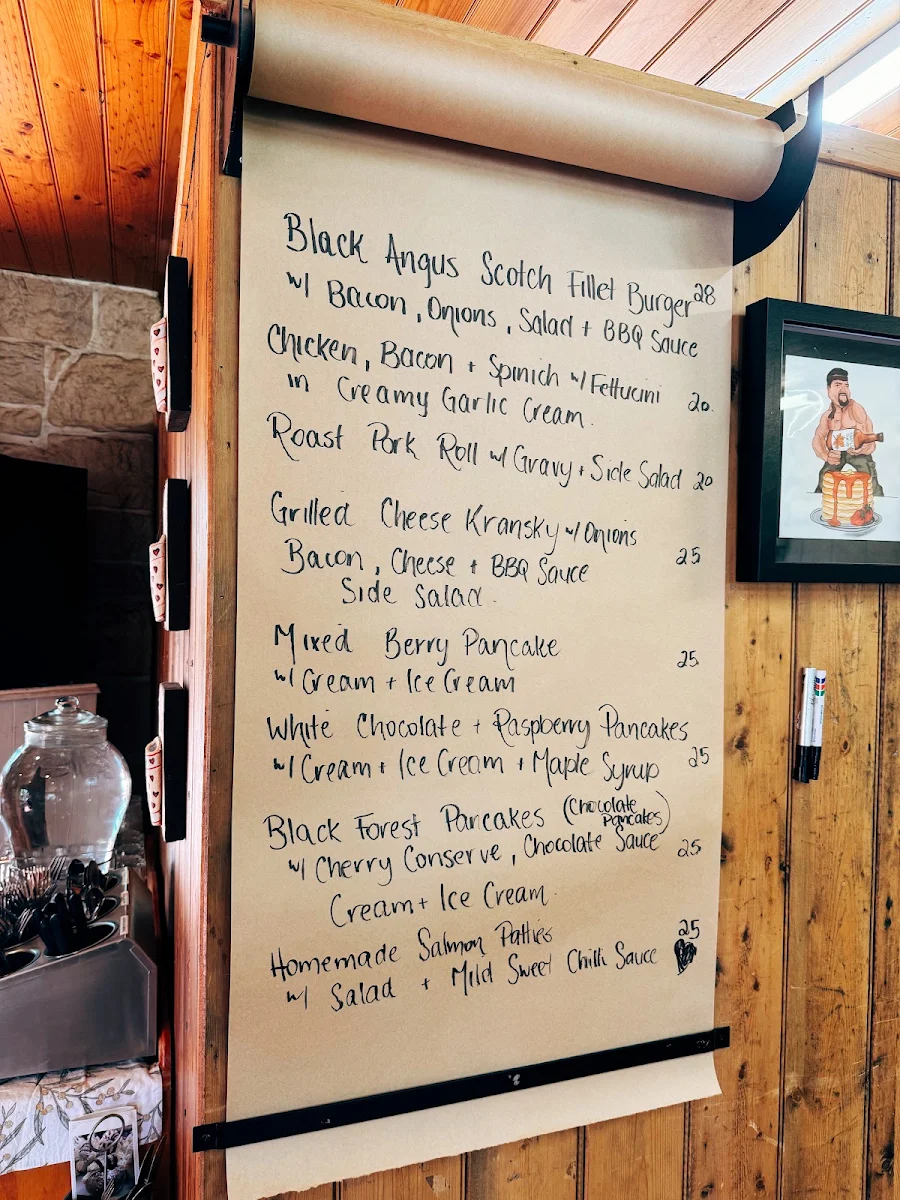 Black Angus Scotch Fillet Burger 28
w/ Bacon, Onions, Salad + BBQ Sauce
Chicken, Bacon + Spinich w/ Fettucini
in Creamy Garlic Cream. 20.
Roast Pork Roll w/ Gravy + Side Salad 20
Grilled Cheese Kransky w/ Onions
Bacon, Cheese + BBQ Sauce 25
Side Salad.
Mixed Berry Pancake
w/ Cream + Ice Cream 25
White Chocolate + Raspberry Pancakes
w/ Cream + Ice Cream + Maple Syrup 25
Black Forest Pancakes (Chocolate Pancakes)
w/ Cherry Conserve, Chocolate Sauce 25
Cream + Ice Cream.
Homemade Salmon Patties 25
w/ Salad + Mild Sweet Chilli Sauce